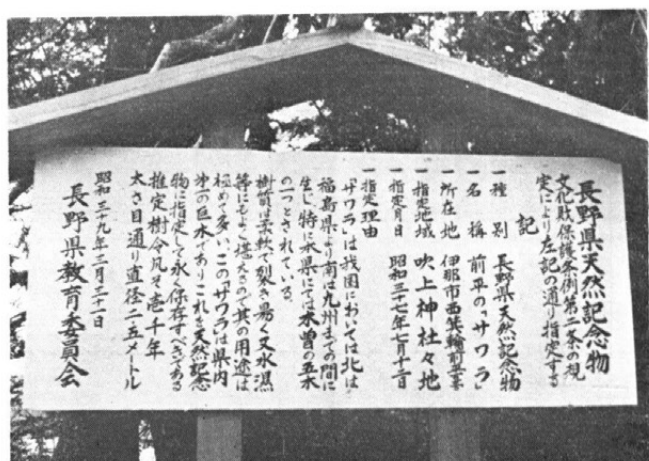 長野県天然記念物
文化財保護条例第二条の規
定により左記の通り指定する
記
一種別 長野県天然記念物
一名称 前平の「サワラ」
一所在地 伊那市西箕輪
一指定地域 吹上神社々地
一指定月日 昭和三十七年七月十二日
一指定理由
「サワラ」は我国においては北は
福島県より南は九州までの間に
生じ、特に本県にては木曽の五木
の一つとされている。
樹質は柔軟で裂き易く又水湿
等にもよく堪えるので其の用途は
極めて多い。この「サワラ」は県内
第一の巨木でありこれを天然記念
物に指定して永く保存すべきである
推定樹令凡そ壱千年
太さ目通り直径二.五メートル
昭和三十九年三月三十一日
長野県教育委員会